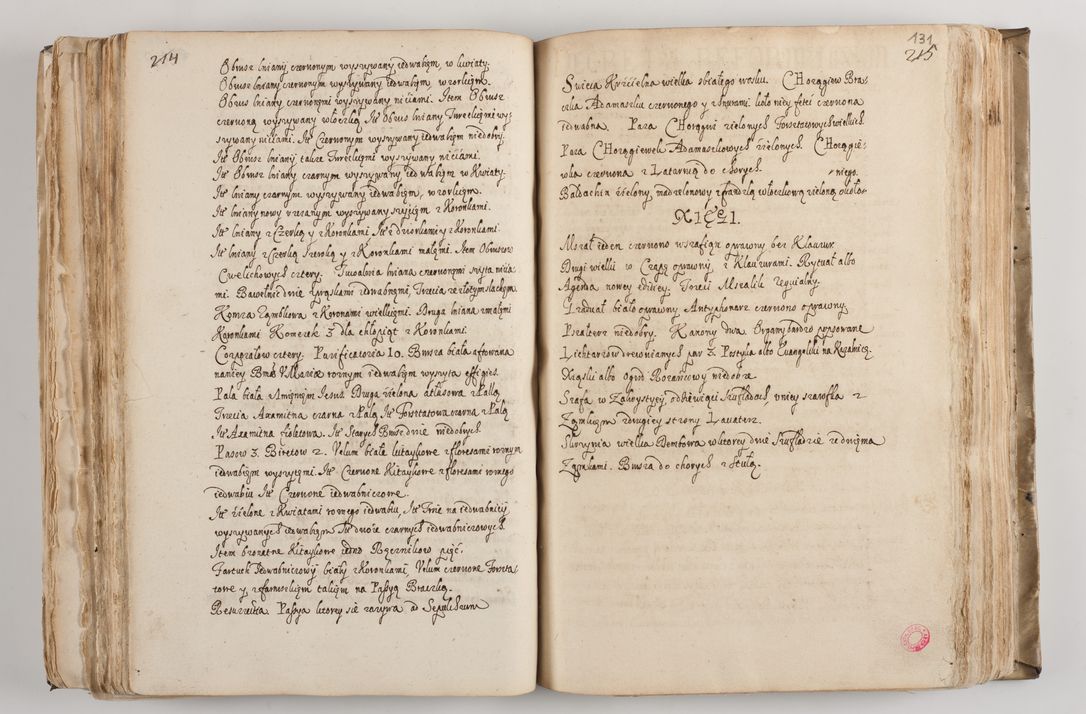 214
Obrus lniany czerwonym wyszywany iedwabiem, w kwiaty.
Obrus lniany czerwonym wyszywany iedwabiem, w orlicze.
Obrus lniany czerwonemi wyszywany nićiami. Item Obrus
czerwoną wyszywany włoczką. Itē Obrus lniany Tureckiemi wy-
szywany nićiami. Itē Czerwonym wyszywany iedwabiem niedobry.
Itē Obrus lniany także Tureckiemi wyszywany nićiami.
Itē Obrus lniany czarnym wyszywany iedwabiem w Kwiaty.
Itē lniany czarnym wyszywany iedwabiem, w orlicze.
Itē lniany nowy wyszywany z Koronkami.
Itē lniany z Czerką y z Koronkami. Itē z dziorkami y z Koronkami.
Itē lniany z Czerką szeroką y z Koronkami małemi. Item Obrusow
Cwelichowych cztery. Tuwalnia lniana czerwonemi szyta nićia-
mi. Bawełnic dwie z iedwabnemi, Trzecia ze złotym szlakiem.
Komża z Koronami wielkiemi. Druga lniana z małemi
Koronkami. Komżek 3 dla chłopiąt z Koronkami.
Corporałow cztery. Purificatoria 10. Bursa biała aftowana
na niey Bmē V Mariæ roznym iedwabiem wyszyta effigies.
Palla biała z Imięniem Jesus. Druga zielona atłasowa z Pallą
Trzecia Axamitna czarna z Palą. Itē Forsztatowa czarna z Palą
Itē Axamitna fioletowa. Itē Starych Burs dwie niedobrych
Pasow 3. Biretow 2. Velum białe kitaykowe z floresami roznym
iedwabiem wyszytemi. Itē Czerwone Kitaykowe z floresami roznego
iedwabiu Itē Czerwone iedwabnicowe.
Itē zielone z Kwiatami roznego iedwabiu, Itē Troie na iedwabnicy
wyszywanych iedwabiem Itē dwoie czarnych iedwabnicowych.
Item brozatne Kitaykowe iedno Ręcznikow pięć.
Fartuch Iedwabnicowy biały z Koronkami, Velum czerwone Forszta-
towe y z farmuszkiem takiem na Passyą Bracką.
Resurrectia Passya ktorey się zazywa ad Sepulchrum
131
215
Swieca Krzcielna wielka z białego wosku. CHorągiew Bra-
cka Adamaszku czerwonego y z sznurami. koło niey feti czerwona
iedwabna. Para CHorągwi zielonych Forsztatowych wielkich
Para CHorągiewek Adamaszkowych zielonych. CHorągie-
wka czerwona z Latarnią do chorych.
Baldachin zielony, madzelonowy z frandzlą włoczkową zieloną około niego.
XIĘGI.
Mszał ieden czerwono w szafian oprawny bez Klauzur
Drugi wielki w Czapę oprawny, z Klauzurami. Rytuał albo
Agenda nowey edicey. Trzeci Mszalik requialny.
Graduał biało oprawny Antyphonarz czerwono oprawny.
Psalterz niedobry. Kanony dwa. Organy bardzo popsowane
Lichtarzow drewnianych par 3. Postylla albo Euangeliki na Kazalnicę.
Xiąszki albo Ogrod Rozancowy niedobrze.
Szafa w Zakrystyey, o dziewięci szuffladach, u niey szrofka z
Zamkiem z drugiey strony Lauaterz.
Skrzynia wielka Dembowa w ktorey dwie szuffladzie ze dwiema
Zamkami. Bursa do chorych z Stułą.